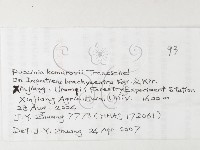 93
Puccinia komarovii Tranzschel
On Impatiens brachycentra Kar. & Kir.
Xinjiang: Urumqi: Forestry Experiment Station
Xinjiang Agricultural Univ.
28 Aug 2006
J. Y. Zhuang (HMAS, 172061)
Det J. Y. Zhuang 24 Apr 2007